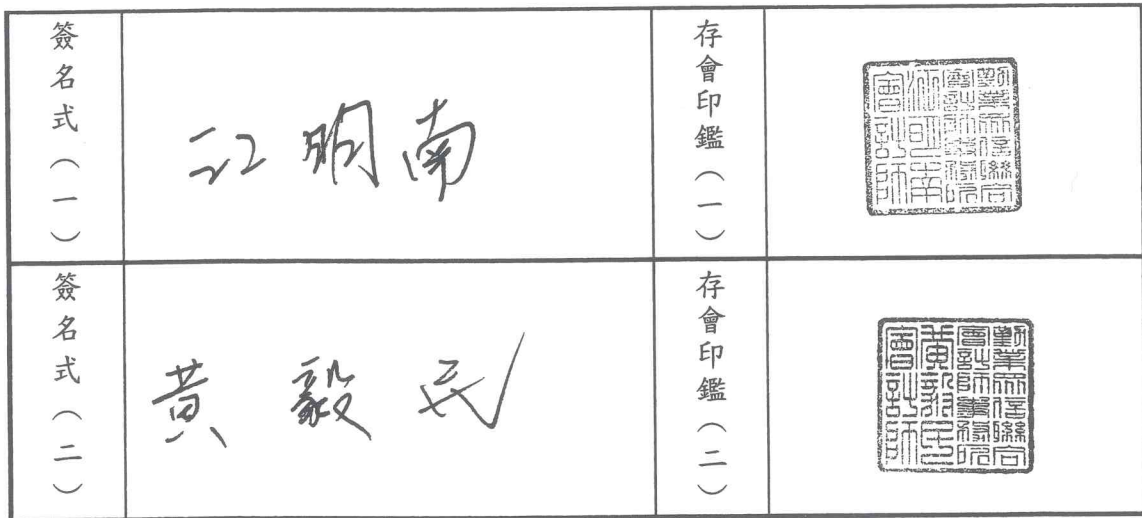 簽名式(一)
江明南
存會印鑑(一)
勤業眾信聯合
會計師事務所
江明南
會計師
簽名式(二)
黃毅民
存會印鑑(二)
勤業眾信聯合
會計師事務所
黃毅民
會計師